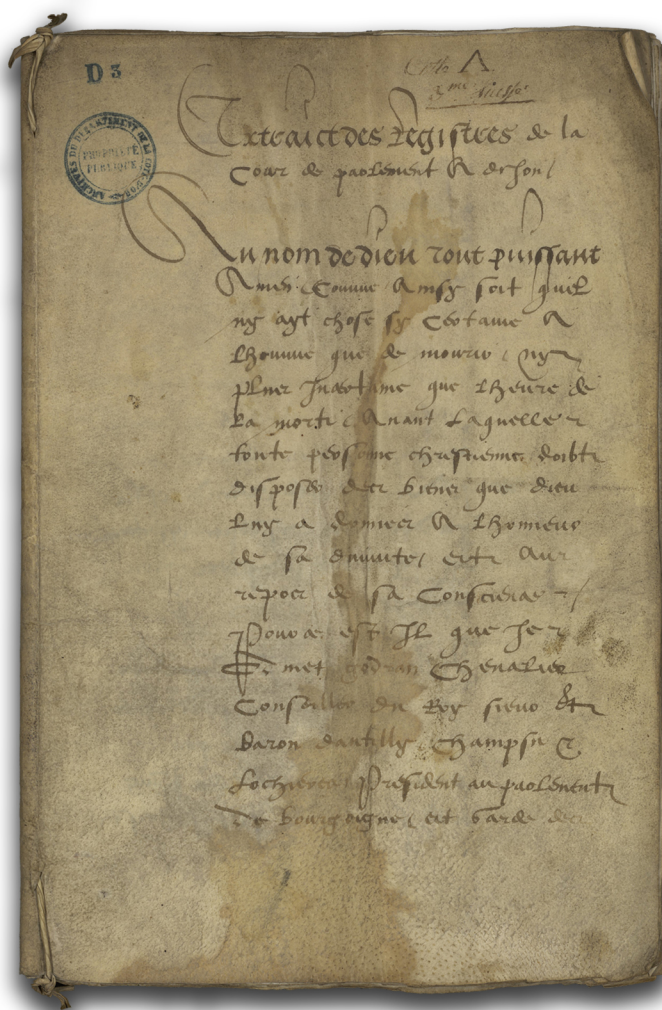 D 3
Cotte A.
3me
ARCHIVES DU DÉPARTEMENT DE LA COTE-D'OR
PROPRIÉTÉ
PUBLIQUE
Extraict des Registres de la
Cour de parlement A dihon
Au nom de dieu tout puissant
Amen Comme Ainsy soit quil
ny ayt chose sy Certaine A
Lhomme que de mourir ny
plus Incertaine que Lheure de
La mort Avant Laquelle
toute personne chrestienne doibt
disposer des biens que dieu
Luy a donnees A Lhonneur
de sa divinite et Au
repos de sa Conscience
Pour ce est Il que Je
godran Chevalier
Conseiller du Roy sieur et
baron dantilly Champseu
President au parlement
de bourgoigne et garde des